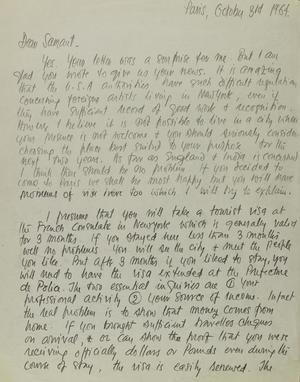 Paris, October 3rd 1964.
Dear Samant.
Yes. Your letter was a surprise for me. But I am
glad you wrote to give us your news. It is amazing
that the U.S.A authorities have such difficult regulations
concerning foreign artists living in New York, even if
they have sufficient record of good work & recognition.
However, I believe it is not possible to live in a city where
your presence is not welcome & you should seriously consider
choosing the place best suited to your purpose for the
next two years. As far as England & India is concerned
I think there should be no problem. If you decided to
come to Paris we shall be most happy but you will have
moments of here too which I will try to explain.
I presume that you will take a tourist visa at
the French Consulate in New York which is generally valid
for 3 months. If you stayed here less than 3 months
well no problem. You will see the city & meet the people
you like. But after 3 months if you liked to stay, you
will need to have the visa extended at the Prefecture
de Police. The two essential inquiries are ① your
professional activity ② your source of income. Infact
the real problem is to show that money comes from
home. If you brought sufficient travellers cheques
on arrival, & or can show the proof that you were
receiving officially dollars or Pounds even during the
course of stay, the visa is easily renewed. The